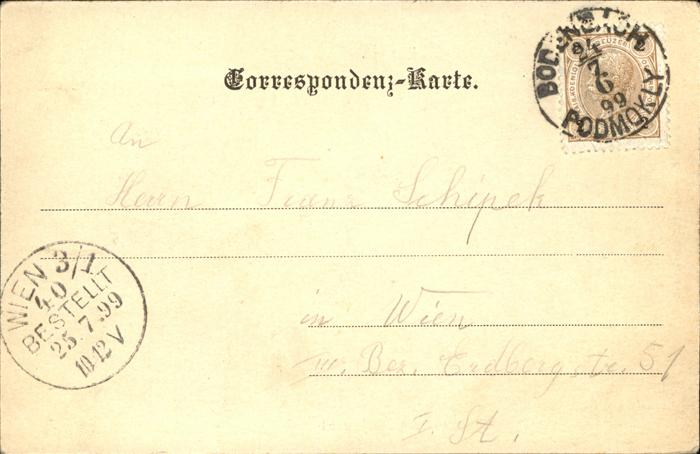 Correspondenz-Karte.
BODENBACH
24
7
6
99
PODMOKLY
An
Herrn Franz Schipek
in Wien
III. Bez. Erdbergstr. 51
I. St.
WIEN 3/1
40
BESTELLT
25.7.99
10-12V